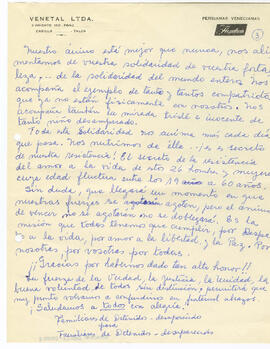 VENETAL LTDA.
PERSIANAS VENECIANAS
CASILLA TALCA
3
Nuestro ánimo está mejor que nunca, nos ali
mentamos de vuestra solidaridad de vuestra forta
leza, .. de la solidaridad del mundo entero. Nos
acompaña el ejemplo de tantos y tantos compatriotas
que ya no están físicamente con nosotros. Nos
acompaña también la mirada triste e inocente de
tanto niño desamparado.
Toda esta Solidaridad nos anima más cada día
que pasa. Nos nutrimos de ella, es el secreto
de nuestra resistencia. El secreto de la resistencia
del amor a la vida de 26 hombres y mujeres
cuya edad fluctúa entre los 19 a 60 años.
Sin duda, que llegará un momento en que
nuestras fuerzas se agoten, pero el ánimo
de vencer no se agotará no se doblegará. Es la
misión que todos tenemos que cumplir, por
a la vida, por amor a la libertad, y la Paz. Por
nosotros por vosotros por todos.
¡¡Gracias por habernos dado tan alto honor!!
La fuerza de la Verdad, la Justicia, la Unidad, la
buena voluntad, de todos sin distinción, permitirá que
muy pronto volvamos a confundirnos en futuros abrazos.
¡Saludamos a todos con alegría!
Familiares de Detenidos - desaparecidos
para
Familiares de Detenidos - desaparecidos